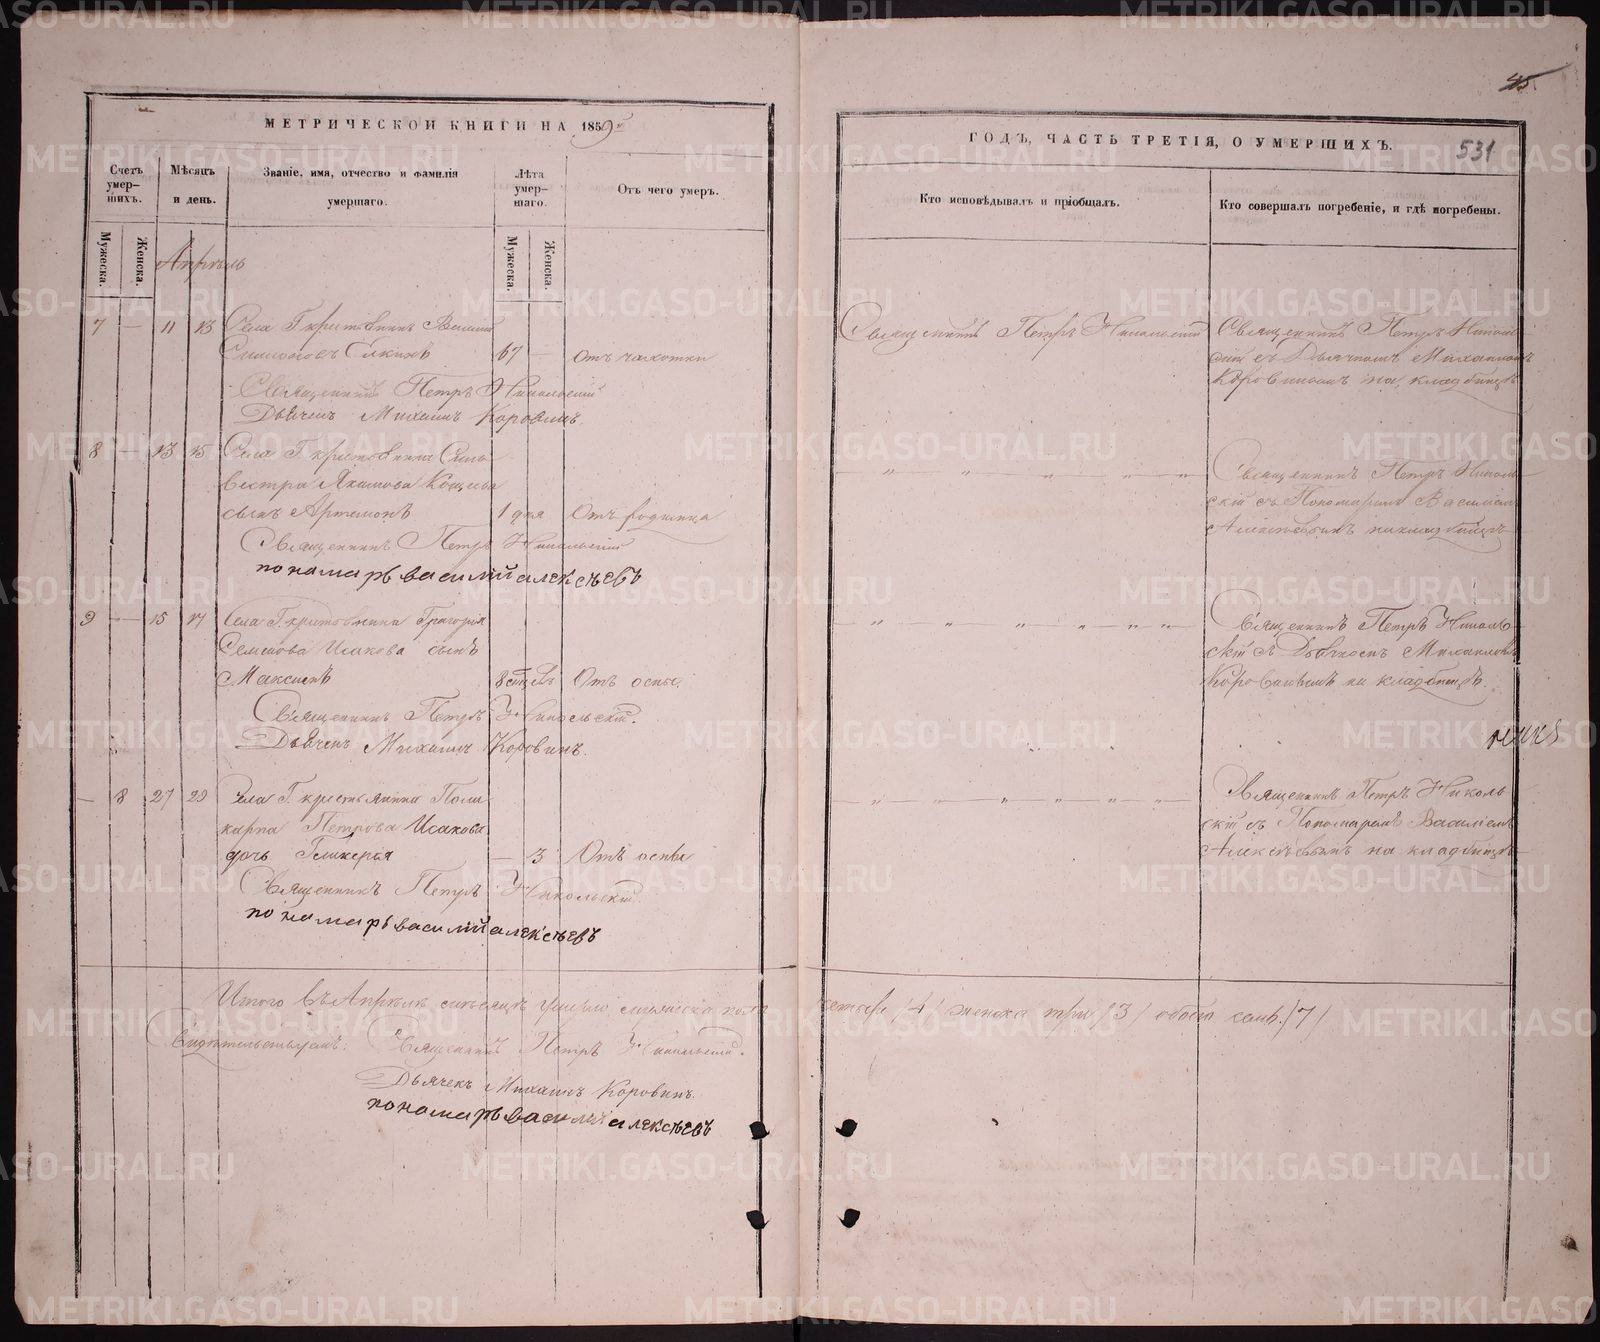 МЕТРИЧЕСКОЙ КНИГИ НА 1859й
Счетъ умер- шихъ.
Мѣсяцъ и день.
Званіе, имя, отчество и фамилія умершаго.
Лѣта умер- шаго.
Отъ чего умеръ.
Мужеска.
Женска.
Мужеска.
Женска.
Апрѣль
7 — 11 13 Села Г.
67 — Отъ чахотки
Священникъ Петръ Никольскій
Дьячекъ Михаилъ Коровинъ.
8 — 13 15 Села Г. Силь-
вестра Якимова
сынъ Артемонъ 1 дня Отъ родимца
Священникъ Петръ Никольскій
пономарь василій алексѣевъ
9 — 15 17 Села Г. Григорія
Семенова Исакова сынъ
Максимъ Отъ оспы.
Священникъ Петръ Никольскій.
Дьячекъ Михаилъ Коровинъ.
— 8 27 29 Села Г. крестьянина Поли-
карпа Петрова Исакова
дочь Гликерія — 3 Отъ оспы
Священникъ Петръ Никольскій.
пономарь василій алексѣевъ
Итого въ Апрѣлѣ мѣсяцѣ умерло мужеска пола
Свидѣтельствуемъ: Священникъ Петръ Никольскій.
Дьячекъ Михаилъ Коровинъ.
пономарь василій алексѣевъ
45.
ГОДЪ, ЧАСТЬ ТРЕТІЯ, О УМЕРШИХЪ.
531
Кто исповѣдывалъ и пріобщалъ.
Кто совершалъ погребеніе, и гдѣ погребены.
Священникъ Петръ Никольскій
Священникъ Петръ Николь-
скій съ Дьячкомъ Михаиломъ
Коровинымъ на кладбищѣ
— " — " — " — " — " —
Священникъ Петръ Николь-
скій съ Пономаремъ Василіемъ
Алексѣевымъ на кладбищѣ
— " — " — " — " — " —
Священникъ Петръ Николь-
скій съ Дьячкомъ Михаиломъ
Коровинымъ на кладбищѣ.
— " — " — " — " — " —
Священникъ Петръ Николь-
скій съ Пономаремъ Василіемъ
Алексѣевымъ на кладбищѣ
четыре /4/ женска три /3/ обоего семь /7/
METRIKI.GASO-URAL.RU